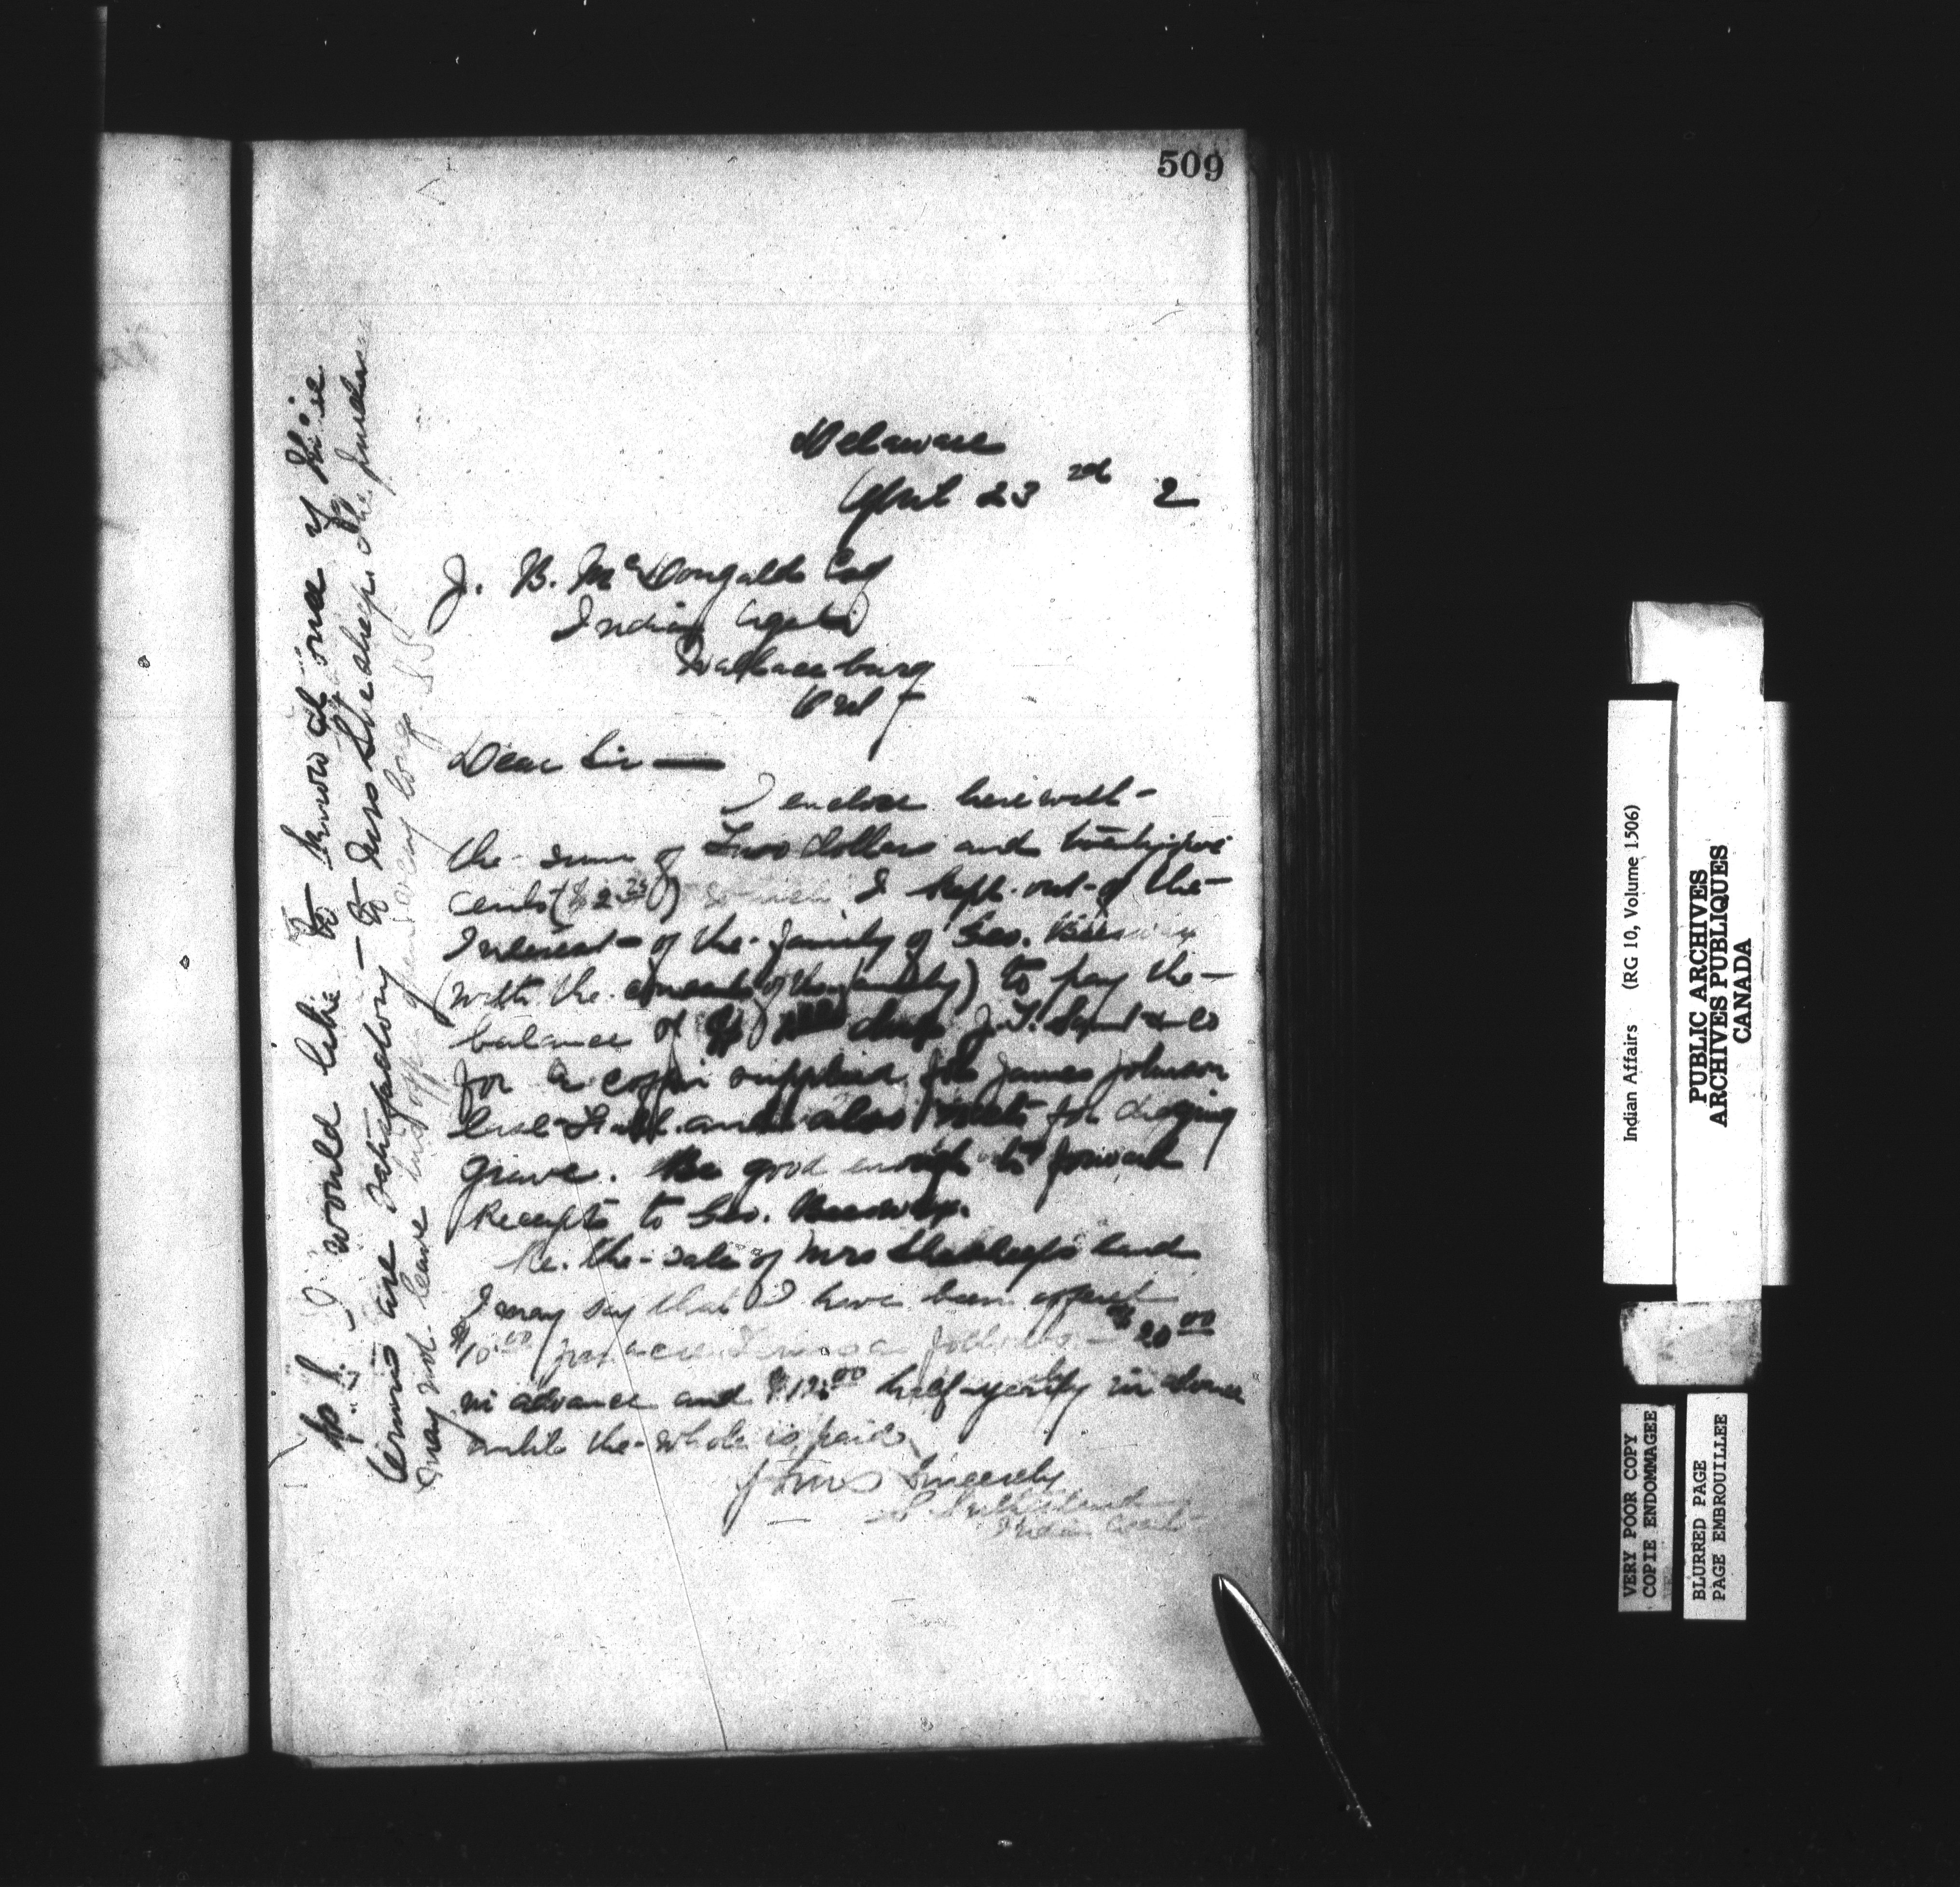 509
Delaware
April 23rd 2
J. B. McDougald Esq
Indian Agent
Wallaceburg
Ont
Dear Sir —
I enclose herewith
the sum of Two dollars and twenty five
cents ($2.25) I kept out of the
Interest of the family of Geo.
(with the consent of the family) to pay the
balance of
for a coffin supplied for James Johnson
and also for digging
grave. Be good enough to forward
Receipts to Geo.
Re. the sale of Mrs land
I may say that I have been offered
$10.00 per acre Terms as follows — $20.00
in advance and $12.00 half yearly in advance
until the whole is paid
Yours Sincerely
Indian Agent
P.S. I would like to know at once if the
terms are satisfactory to Mrs the purchaser
may not leave his offer open very long
Indian Affairs (RG 10, Volume 1506)
PUBLIC ARCHIVES
ARCHIVES PUBLIQUES
CANADA
VERY POOR COPY
COPIE ENDOMMAGEE
BLURRED PAGE
PAGE EMBROUILLEE